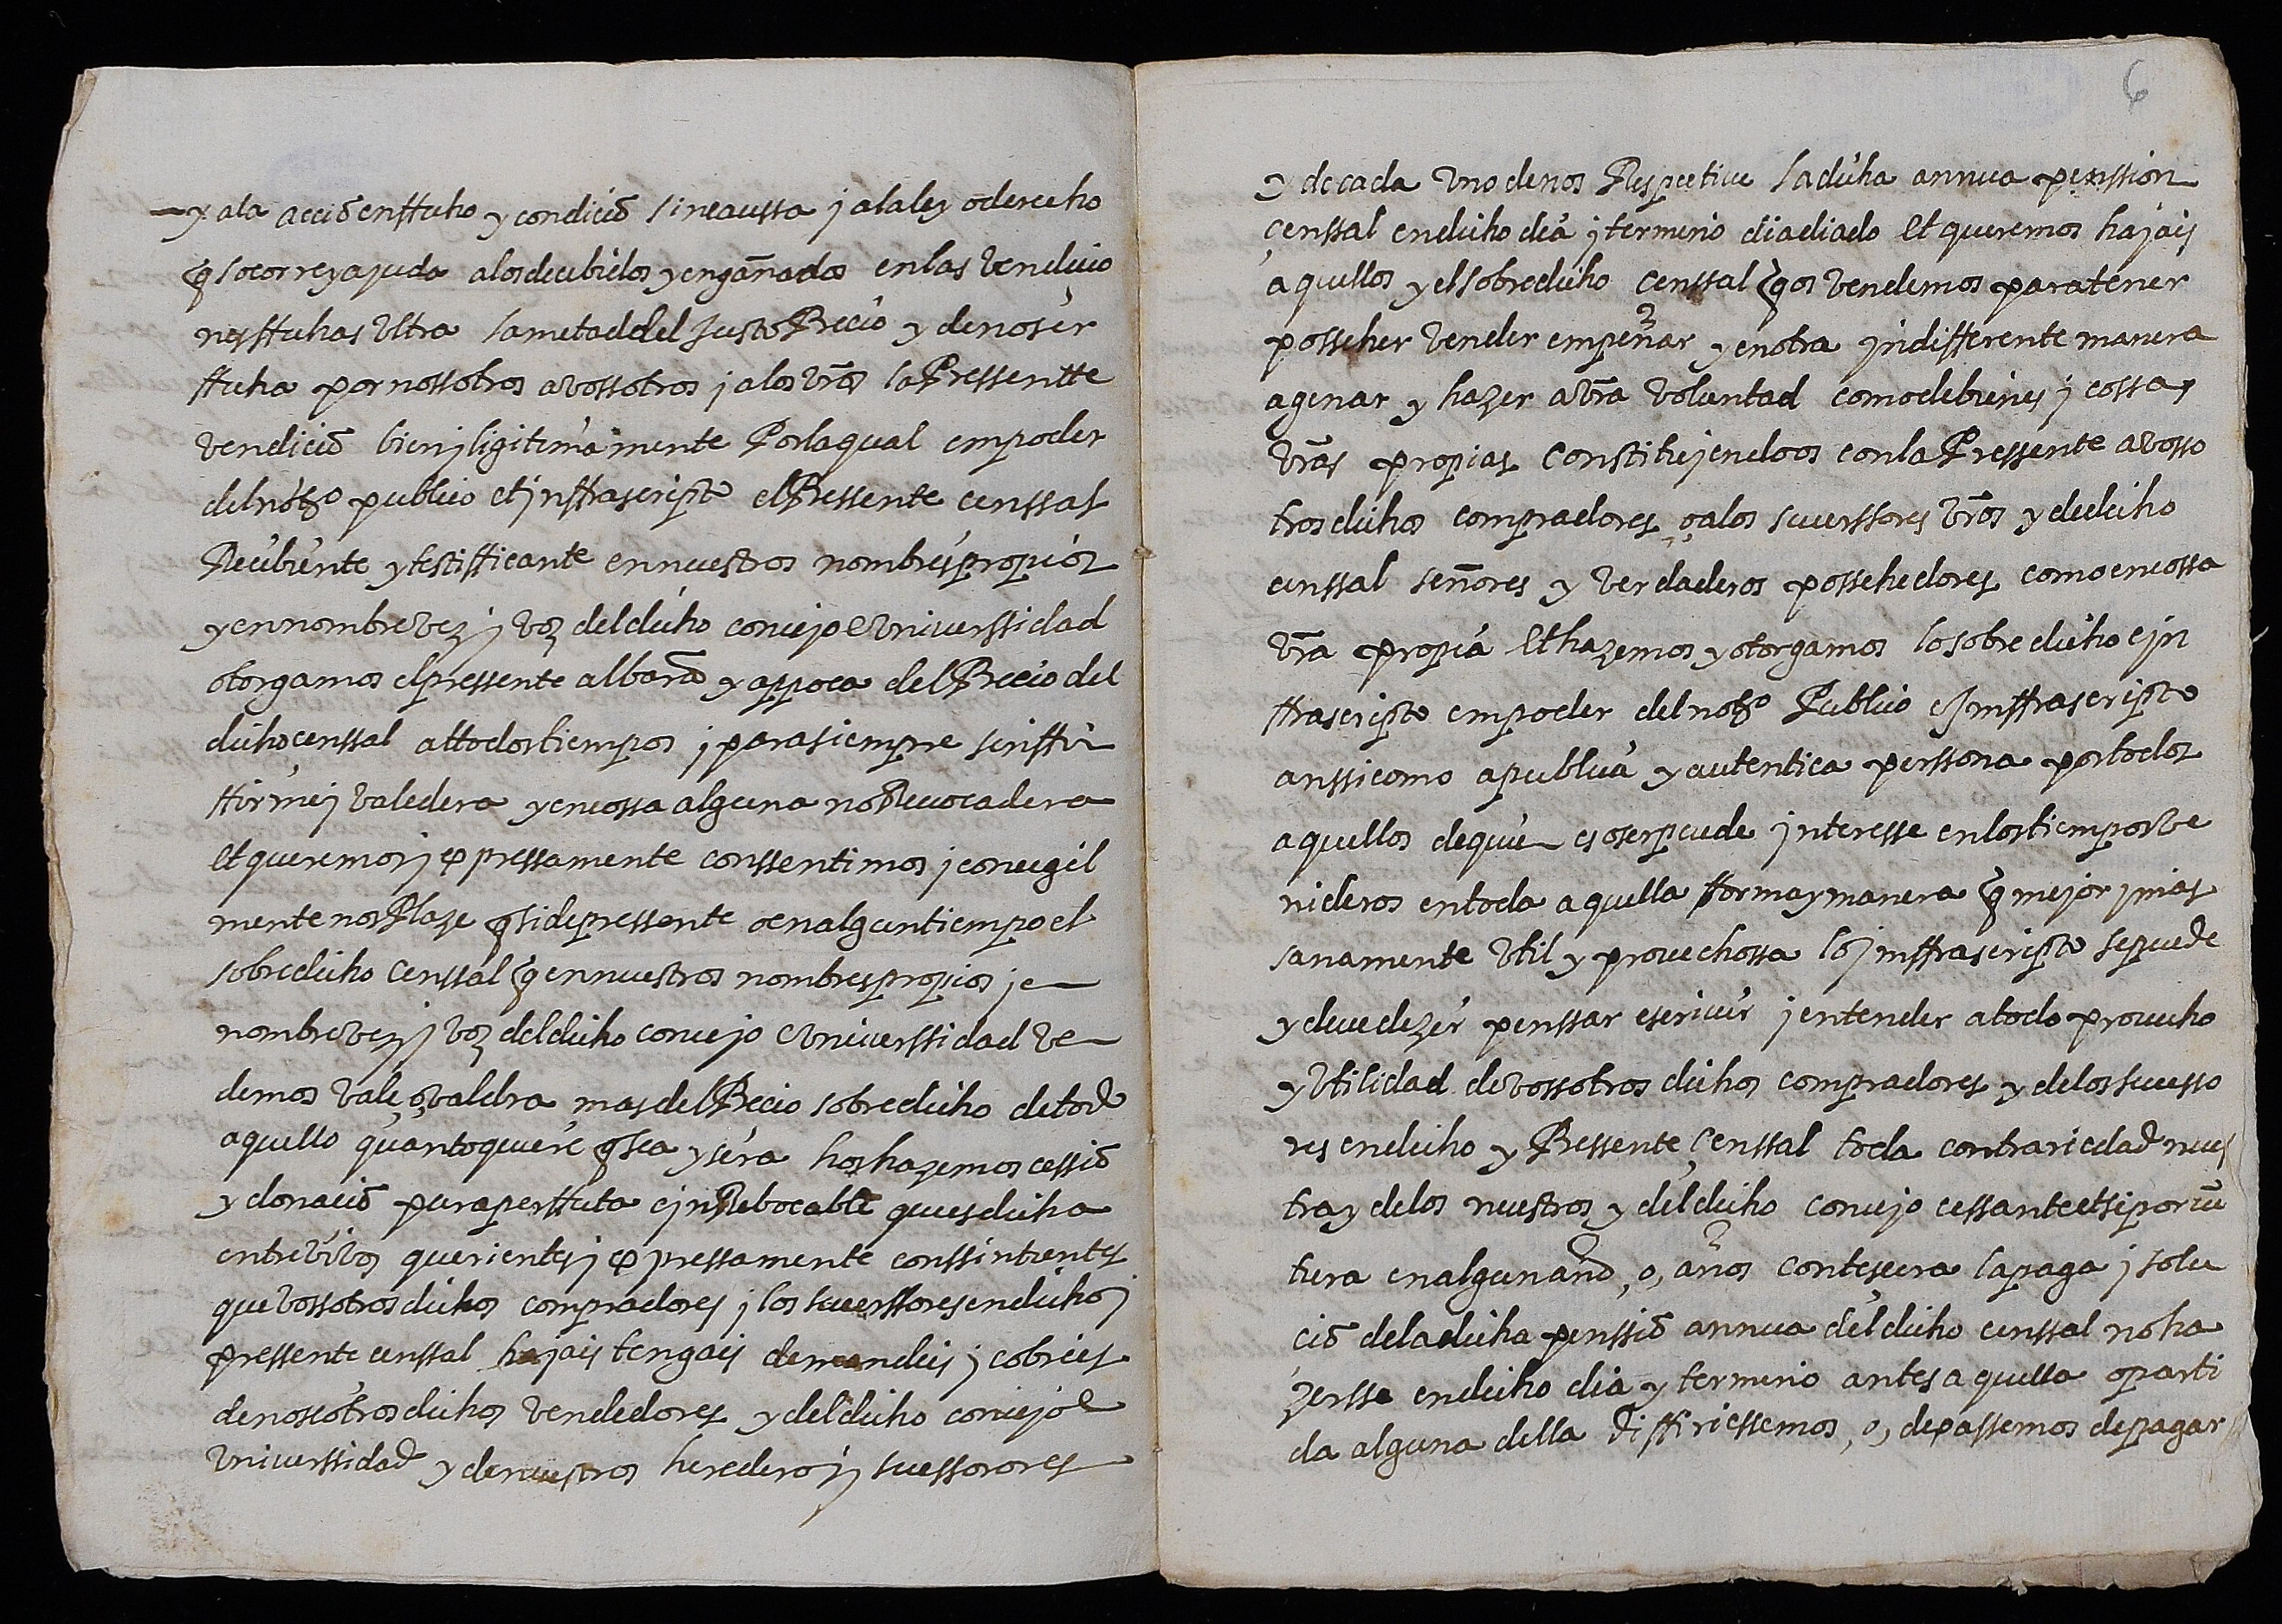 y ala acciō en ffecho y condiciō sine caussa j ala ley o derecho
q̄ socorre y ajuda alos decebidos y engañados en las vendicio
nes ffechas vltra la metad del Justo Precio y de no sér
ffecha por nossotros a vossotros j alos vr̄os la Pressentte
vendiciō bien j ligitimamente Por la qual em poder
del not̄o publico et jnffrascripto el Pressente censsal
Recibiente y testifficante en nuestros nombres propios
y en nombre vez j voz del dicho concejo e vniuerssidad
otorgamos el pressente albarā y appoca del Precio del
dicho censsal attodos tiempos j para siempre
ffirme j valedera y en cossa alguna no Reuocadera
Et queremos j expressamente conssentimos j
mente nos Plaze q̄ si de pressente o en algun tiempo el
sobredicho censsal q̄ en nuestros nombres propios j e
nombre vez j voz del dicho concejo e vniuerssidad ve
demos vale, o, valdra mas del Precio sobredicho de todo
aquello quanto quiere q̄ sea y séra hos hazemos cessiō
y donaciō pura perffeta e jnRebocable ques dicha
entre vivos querientes j expressamente conssintientes
que vossotros dichos compradores j los sucerssores en dicho j
pressente censsal hajais tengais demandeis j cobreis
de nossotros dichos vendedores y del dicho concejo e
vniuerssidad y de nuestros herederos j suessorores
6
y de cada vno de nos Respectiue la dicha annua penssion
çenssal en dicho dia j termino diadiado Et queremos hajais
aquellos y el sobredicho censsal q̄ os vendemos para tener
posseher vender empeñar y en otra jndifferente manera
agenar y hazer a vr̄a voluntad como de bienes j cossas
vr̄as propias Constitujendoos con la Pressente a vosso
tros dichos compradores, o, alos sucerssores vr̄os y de dicho
censsal señores y verdaderos possehedores como en cossa
vr̄a propia Et hazemos y otorgamos lo sobre dicho e jn
ffrascripto em poder del not̄o Publico e jnffrascripto
anssi como a publica y autentica perssona por todos
aquellos de quie es o ser puede jnteresse en los tiempos ve
nideros en toda aquella fforma y manera q̄ mejor j mas
sanamente vtil y prouechossa lo jnffrascripto se puede
y deue dezir penssar escriuir j entender a todo prouecho
y vtilidad de vossotros dichos compradores y de los sucesso
res en dicho y Pressente çenssal toda contrariedad nues
tra y de los nuestros y del dicho concejo cessante et si por vē
tura en algun año, o, años contesçera la paga j solu
ciō de la dicha penssiō annua del dicho censsal no ha
zersse en dicho dia y termino antes aquella o parti
da alguna della diffiriessemos, o, dexassemos de pagar